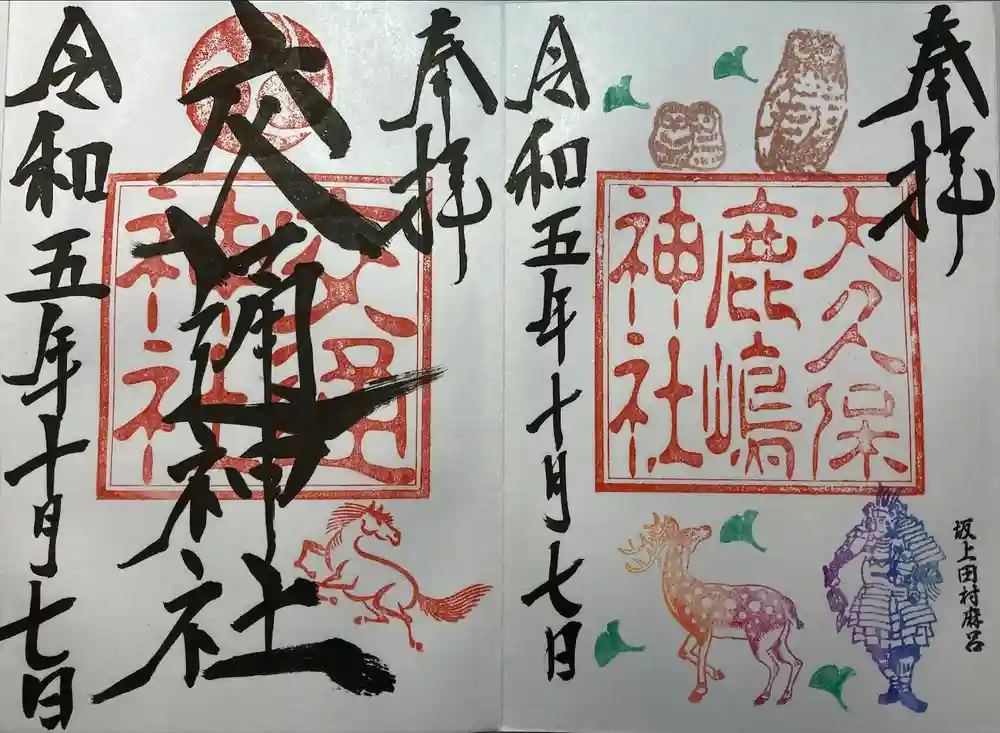 奉拝
大久保
鹿嶋
神社
坂上田村麻呂
令和五年十月七日
奉拝
交通神社
令和五年十月七日